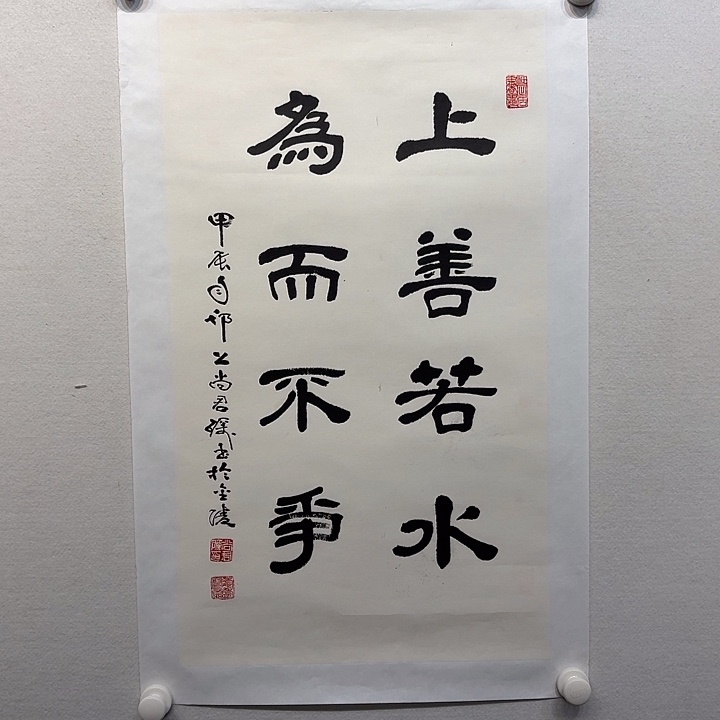 上善若水
為而不爭
甲辰年邗上尚君礪書於金陵